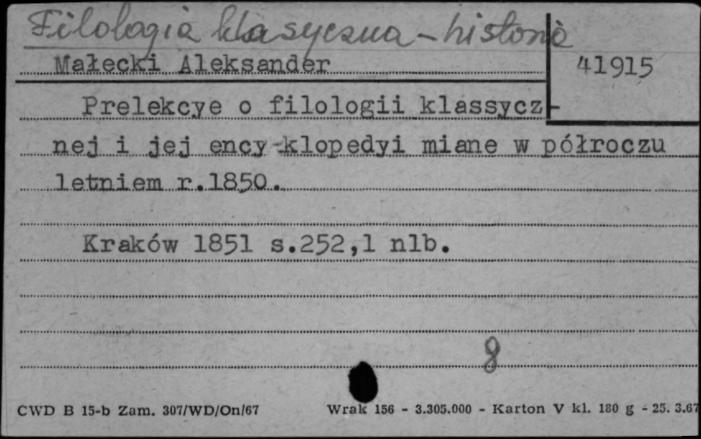 Filologia klasyczna - historia
Małecki Aleksander
41915
Prelekcye o filologii klassycz-
nej i jej ency-klopedyi miane w półroczu
letniem r.1850.
Kraków 1851 s.252,1 nlb.
8
CWD B 15-b Zam. 307/WD/On/67 Wrak 156 - 3.305.000 - Karton V kl. 180 g - 25. 3.67